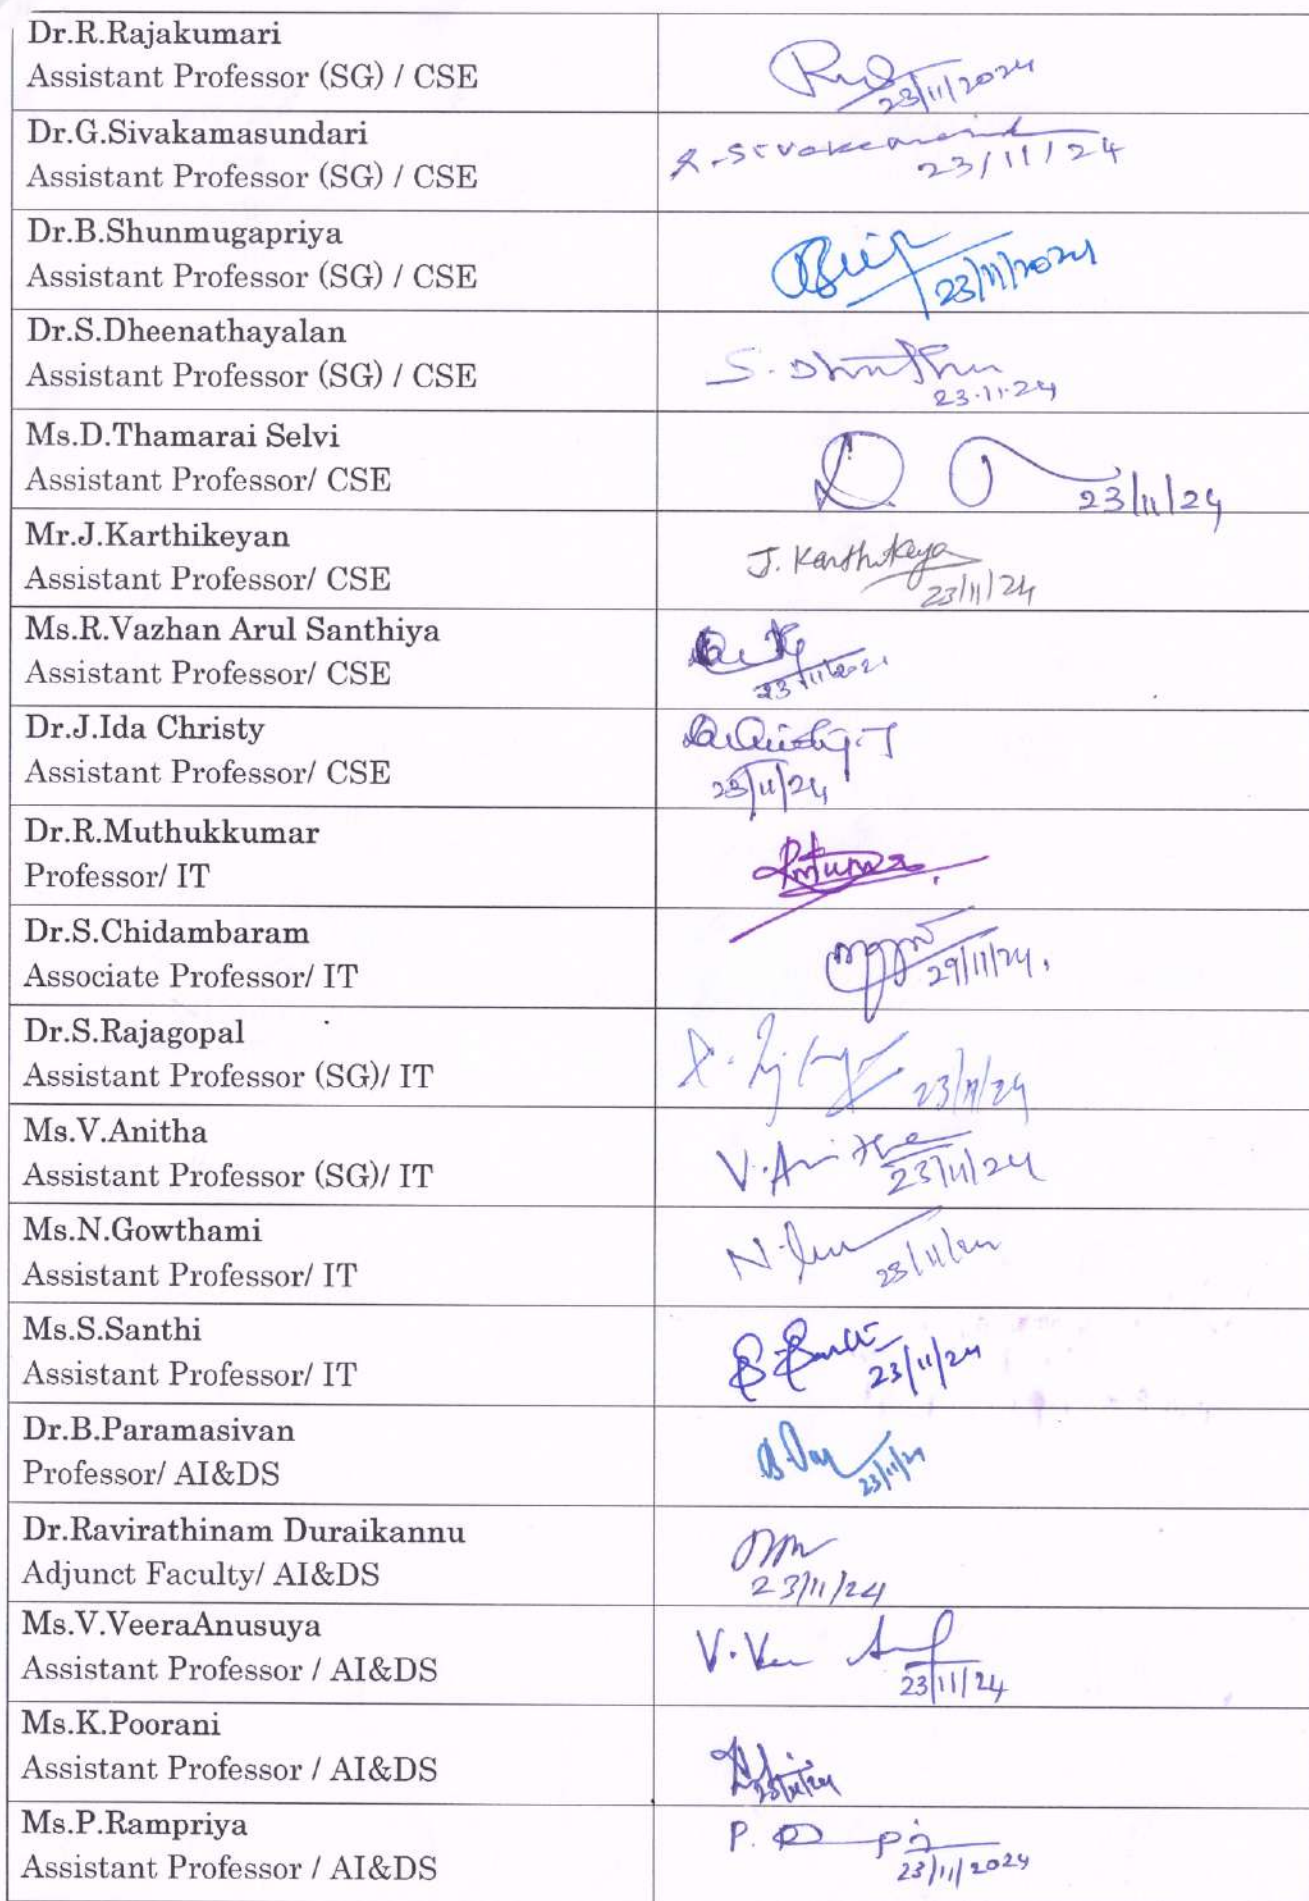 Dr.R.Rajakumari
Assistant Professor (SG) / CSE
23/11/2024
Dr.G.Sivakamasundari
Assistant Professor (SG) / CSE
23/11/24
Dr.B.Shunmugapriya
Assistant Professor (SG) / CSE
23/11/2024
Dr.S.Dheenathayalan
Assistant Professor (SG) / CSE
23.11.24
Ms.D.Thamarai Selvi
Assistant Professor/ CSE
23/11/24
Mr.J.Karthikeyan
Assistant Professor/ CSE
J. Karthikeya
23/11/24
Ms.R.Vazhan Arul Santhiya
Assistant Professor/ CSE
Dr.J.Ida Christy
Assistant Professor/ CSE
23/11/24
Dr.R.Muthukkumar
Professor/ IT
Dr.S.Chidambaram
Associate Professor/ IT
29/11/24.
Dr.S.Rajagopal
Assistant Professor (SG)/ IT
23/11/24
Ms.V.Anitha
Assistant Professor (SG)/ IT
23/11/24
Ms.N.Gowthami
Assistant Professor/ IT
23/11/24
Ms.S.Santhi
Assistant Professor/ IT
23/11/24
Dr.B.Paramasivan
Professor/ AI&DS
23/11/24
Dr.Ravirathinam Duraikannu
Adjunct Faculty/ AI&DS
23/11/24
Ms.V.VeeraAnusuya
Assistant Professor / AI&DS
23/11/24
Ms.K.Poorani
Assistant Professor / AI&DS
23/11/24
Ms.P.Rampriya
Assistant Professor / AI&DS
23/11/2024